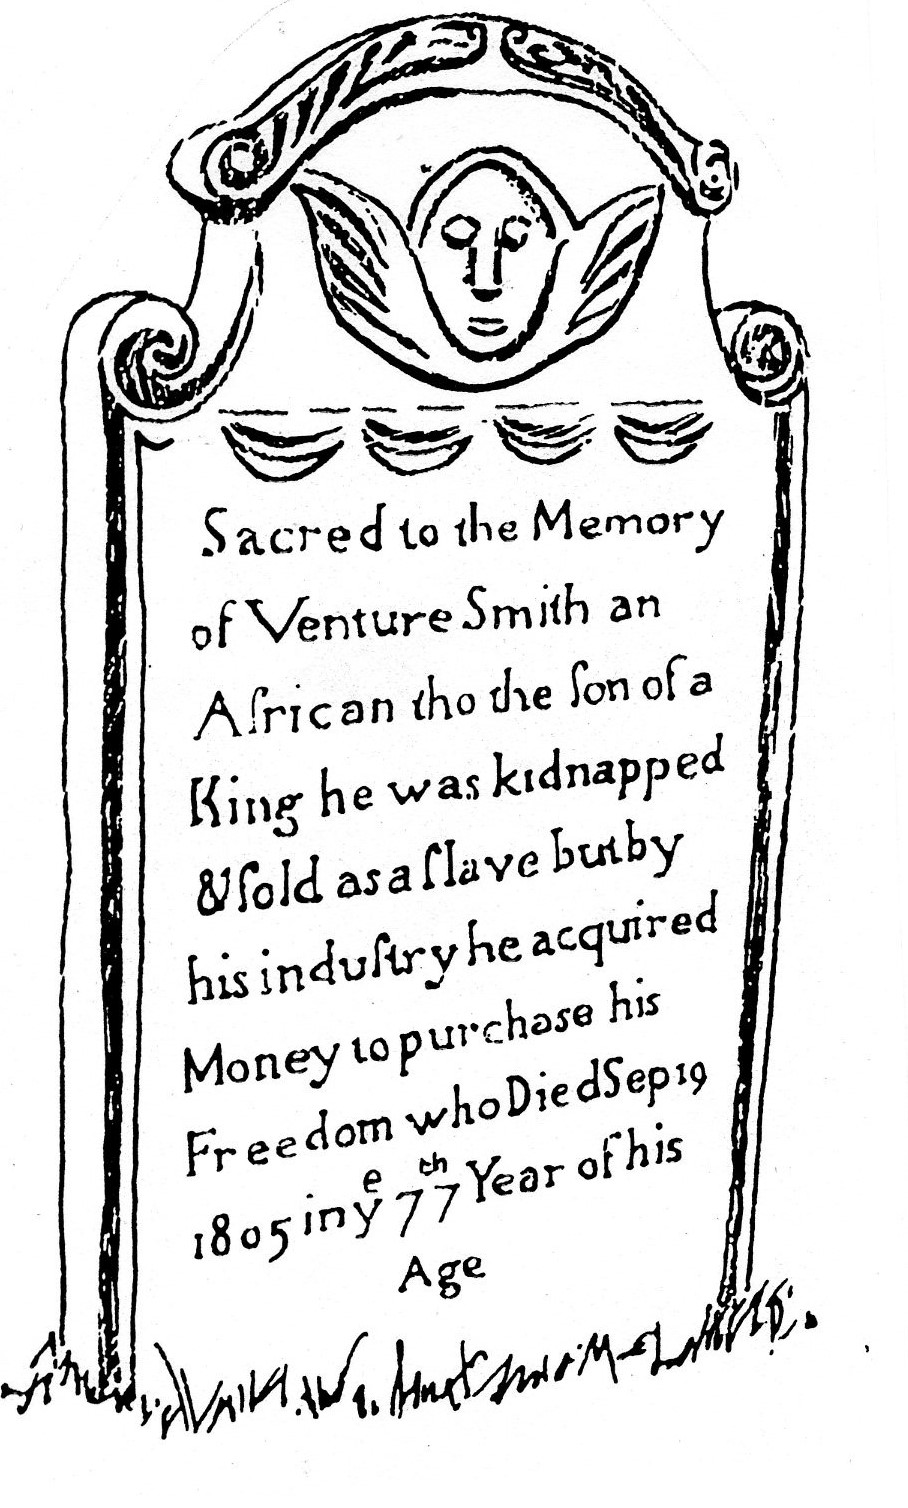 Sacred to the Memory
of Venture Smith an
Aſrican tho the ſon of a
King he was kidnapped
& ſold as a ſlave but by
his induſtry he acquired
Money to purchase his
Freedom who Died Sep 19
1805 in yᵉ 77ᵗʰ Year of his
Age